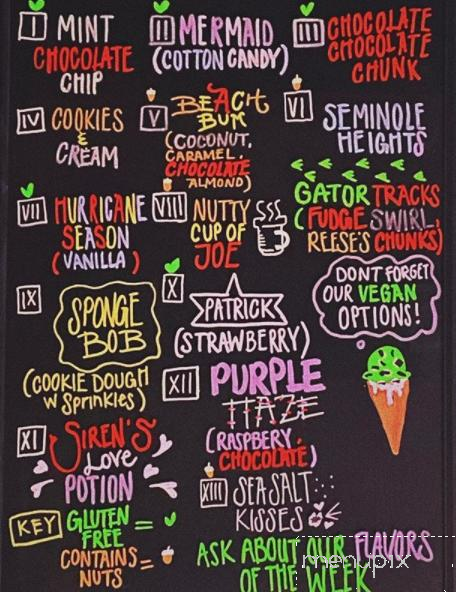 I MINT
CHOCOLATE
CHIP
II MERMAID
(COTTON CANDY)
III CHOCOLATE
CHOCOLATE
CHUNK
IV COOKIES
&
CREAM
V BEACH
BUM
(COCONUT,
CARAMEL,
CHOCOLATE
ALMOND)
VI SEMINOLE
HEIGHTS
GATOR TRACKS
(FUDGE SWIRL,
REESE'S CHUNKS)
VII HURRICANE
SEASON
(VANILLA)
VIII NUTTY
CUP OF
JOE
DONT FORGET
OUR VEGAN
OPTIONS!
IX SPONGE
BOB
(COOKIE DOUGH
W SPRINKLES)
X PATRICK
(STRAWBERRY)
XI SIREN'S
LOVE
POTION
XII PURPLE
HAZE
(RASPBERY,
CHOCOLATE)
XIII SEA SALT
KISSES
KEY GLUTEN
FREE =
CONTAINS =
NUTS
ASK ABOUT OUR FLAVORS
OF THE WEEK
menupix